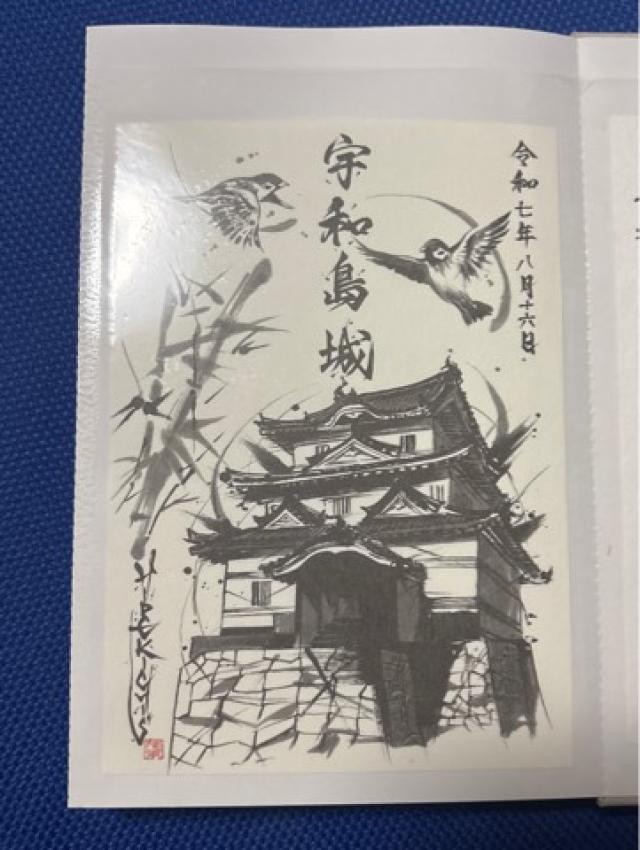 令和七年八月十六日
宇和島城